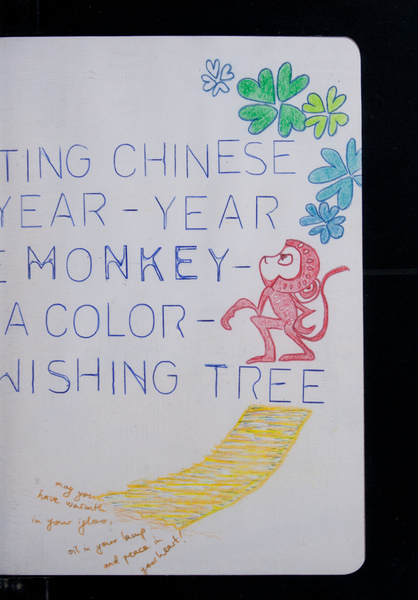 TING CHINESE
YEAR - YEAR
E MONKEY-
A COLOR-
WISHING TREE
may you
have warmth
in your igloo,
oil in your lamp
and peace in
your heart!